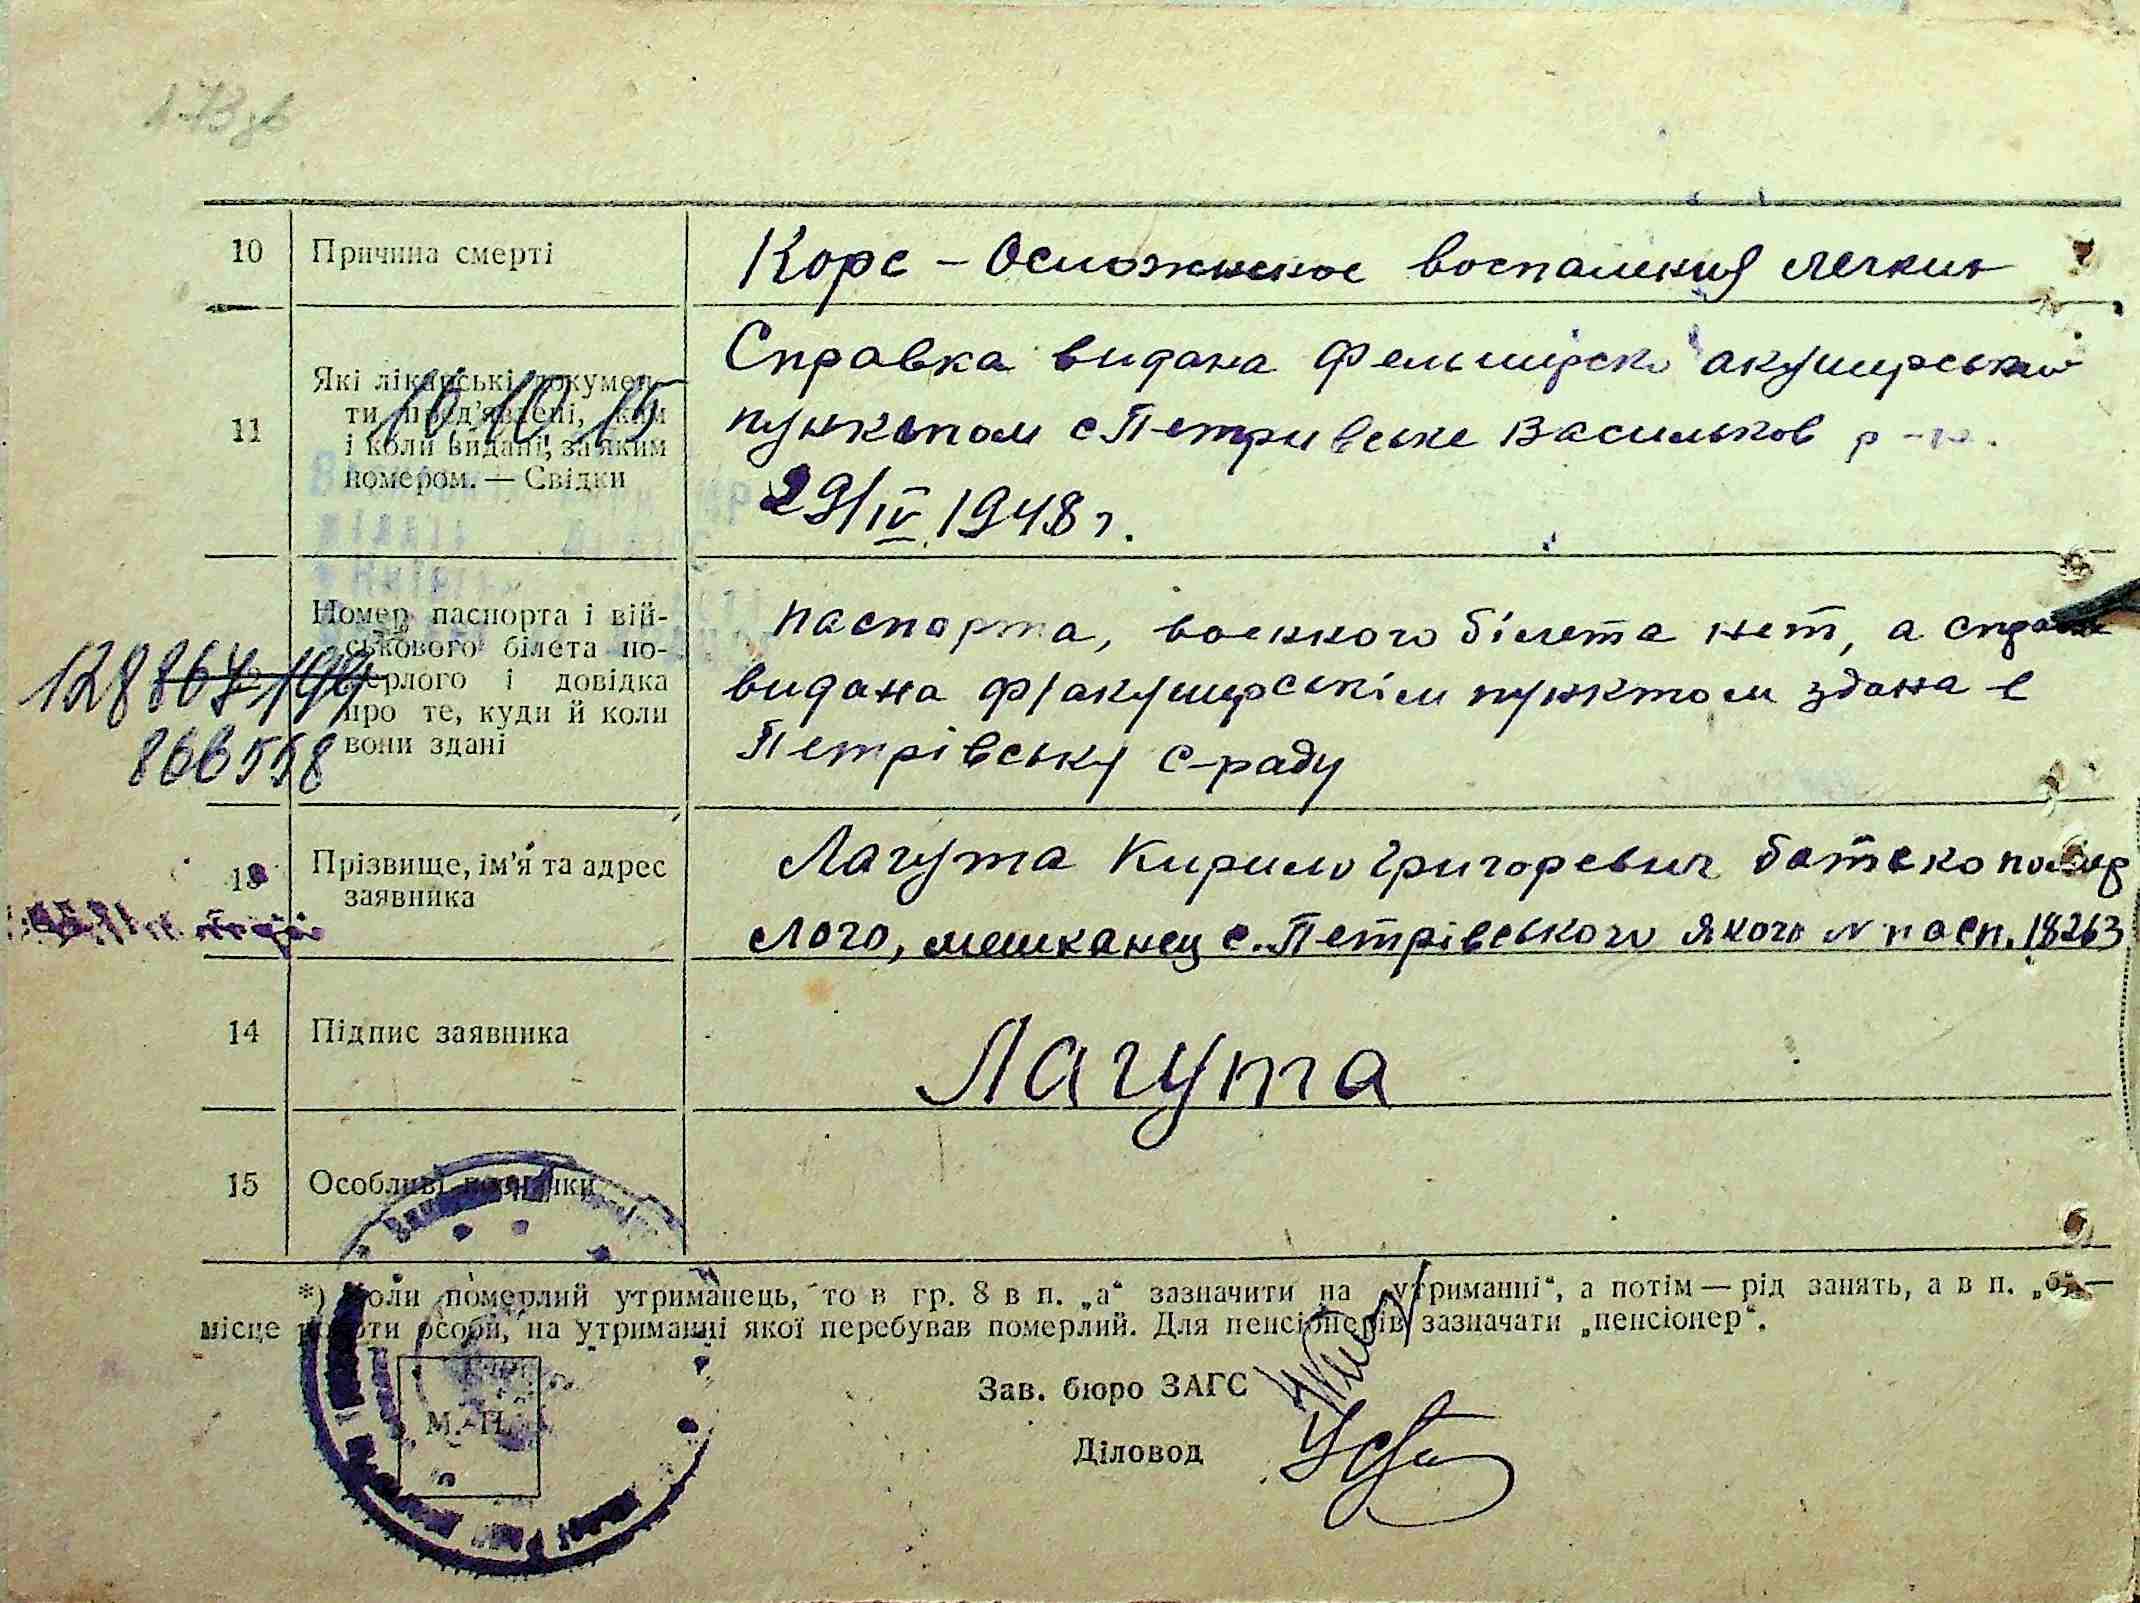 10 Причина смерті Корс – Осложненое воспаления легких
11 Які лікарські документи пред'явлені, ким і коли видані, за яким номером. — Свідки
10 10 15
Справка видана фельшірско акушерським
пунктом с Петривське Васильков р-н.
29/IV 1948 г.
Номер паспорта і військового білета померлого і довідка про те, куди й коли вони здані
128867 199
866558
паспорта, воєнного білета нет, а справка
видана ф/акушерськім пунктом здана в
Петрівську с-раду
13 Прізвище, ім'я та адрес
заявника
Лагута Кирило Григоревич батько помер
лого, мешканец с. Петрівського якого № пасп. 18263
14 Підпис заявника Лагута
15 Особливі
*) Коли померлий утриманець, то в гр. 8 в п. „а“ зазначити на „утриманні“, а потім — рід занять, а в п. „б“ —
місце роботи особи, на утриманні якої перебував померлий. Для пенсіонерів зазначати „пенсіонер“.
Зав. бюро ЗАГС
М. П.
Діловод